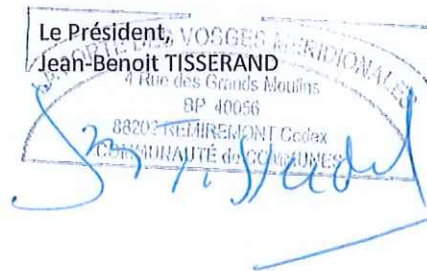 Le Président,
Jean-Benoit TISSERAND
LA PORTE DES VOSGES MERIDIONALES
4 Rue des Grands Moulins
BP 40056
88202 REMIREMONT Cedex
COMMUNAUTÉ de COMMUNES
Tisserand